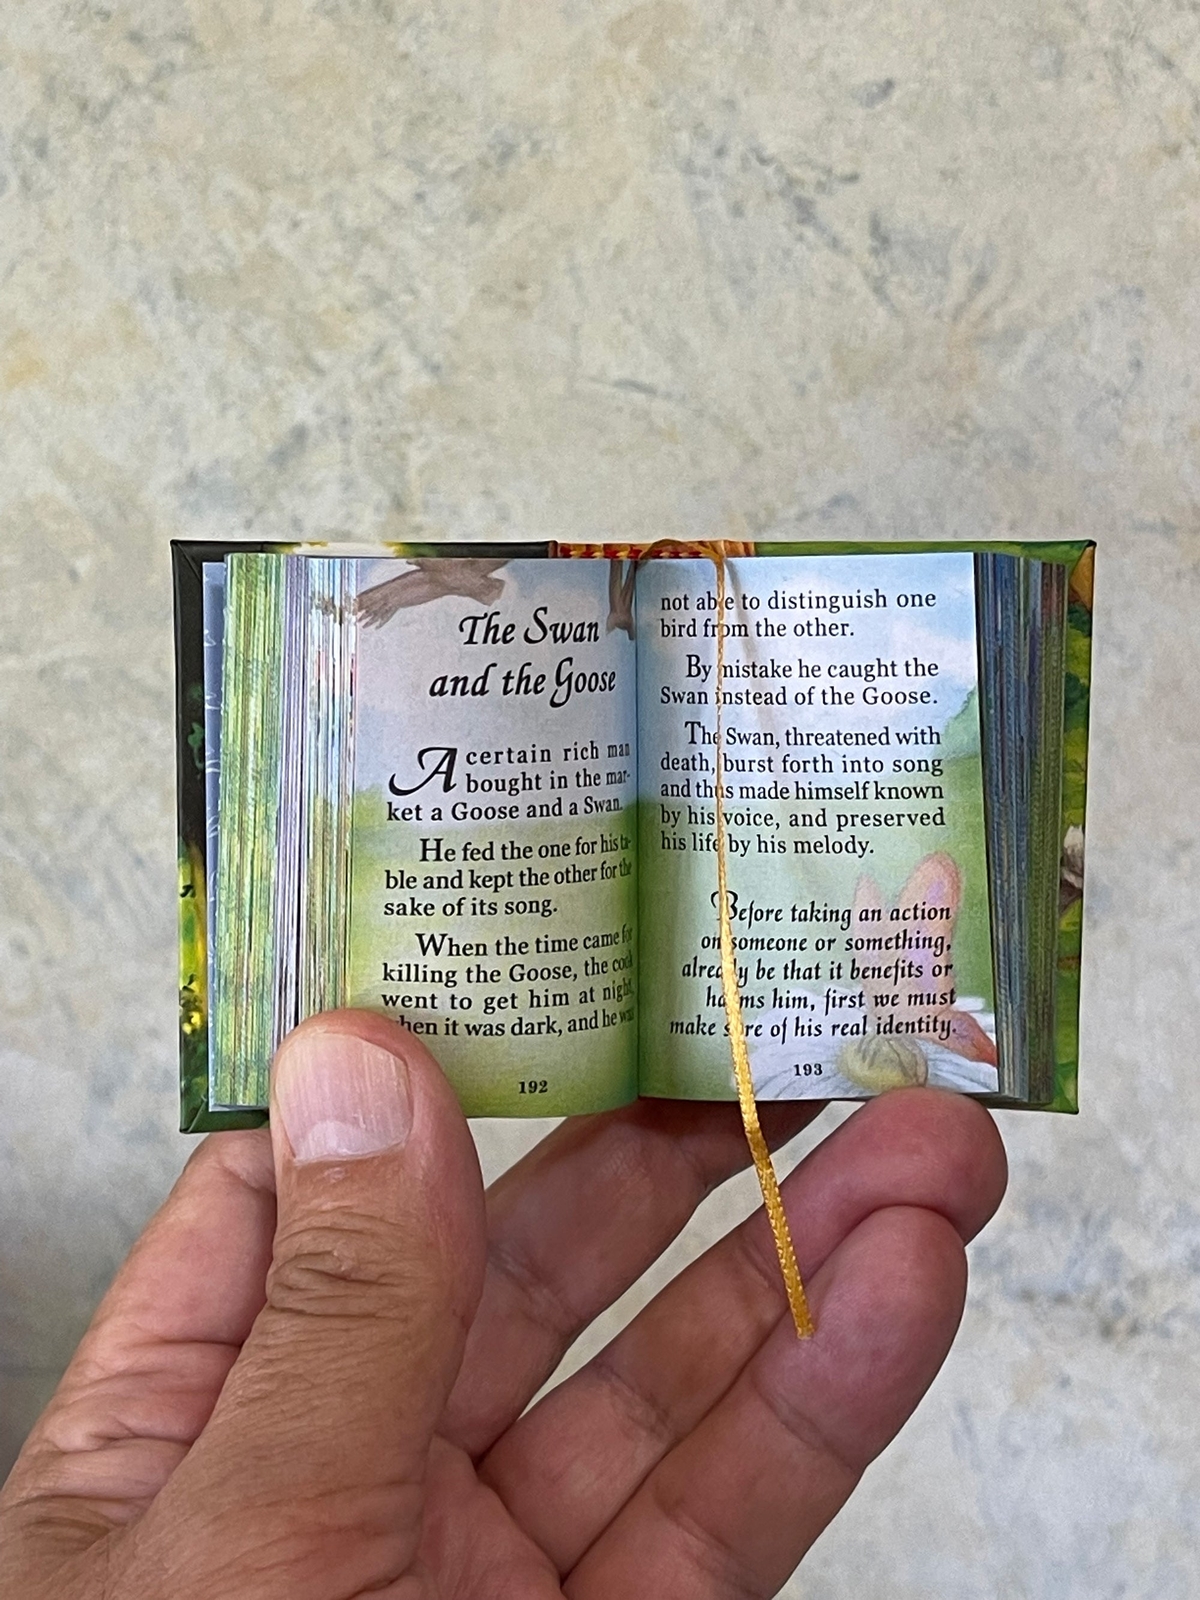 The Swan
and the Goose
A certain rich man
bought in the mar-
ket a Goose and a Swan.
He fed the one for his ta-
ble and kept the other for the
sake of its song.
When the time came for
killing the Goose, the cook
went to get him at night,
when it was dark, and he was
192
not able to distinguish one
bird from the other.
By mistake he caught the
Swan instead of the Goose.
The Swan, threatened with
death, burst forth into song
and thus made himself known
by his voice, and preserved
his life by his melody.
Before taking an action
on someone or something,
already be that it benefits or
harms him, first we must
make sure of his real identity.
193